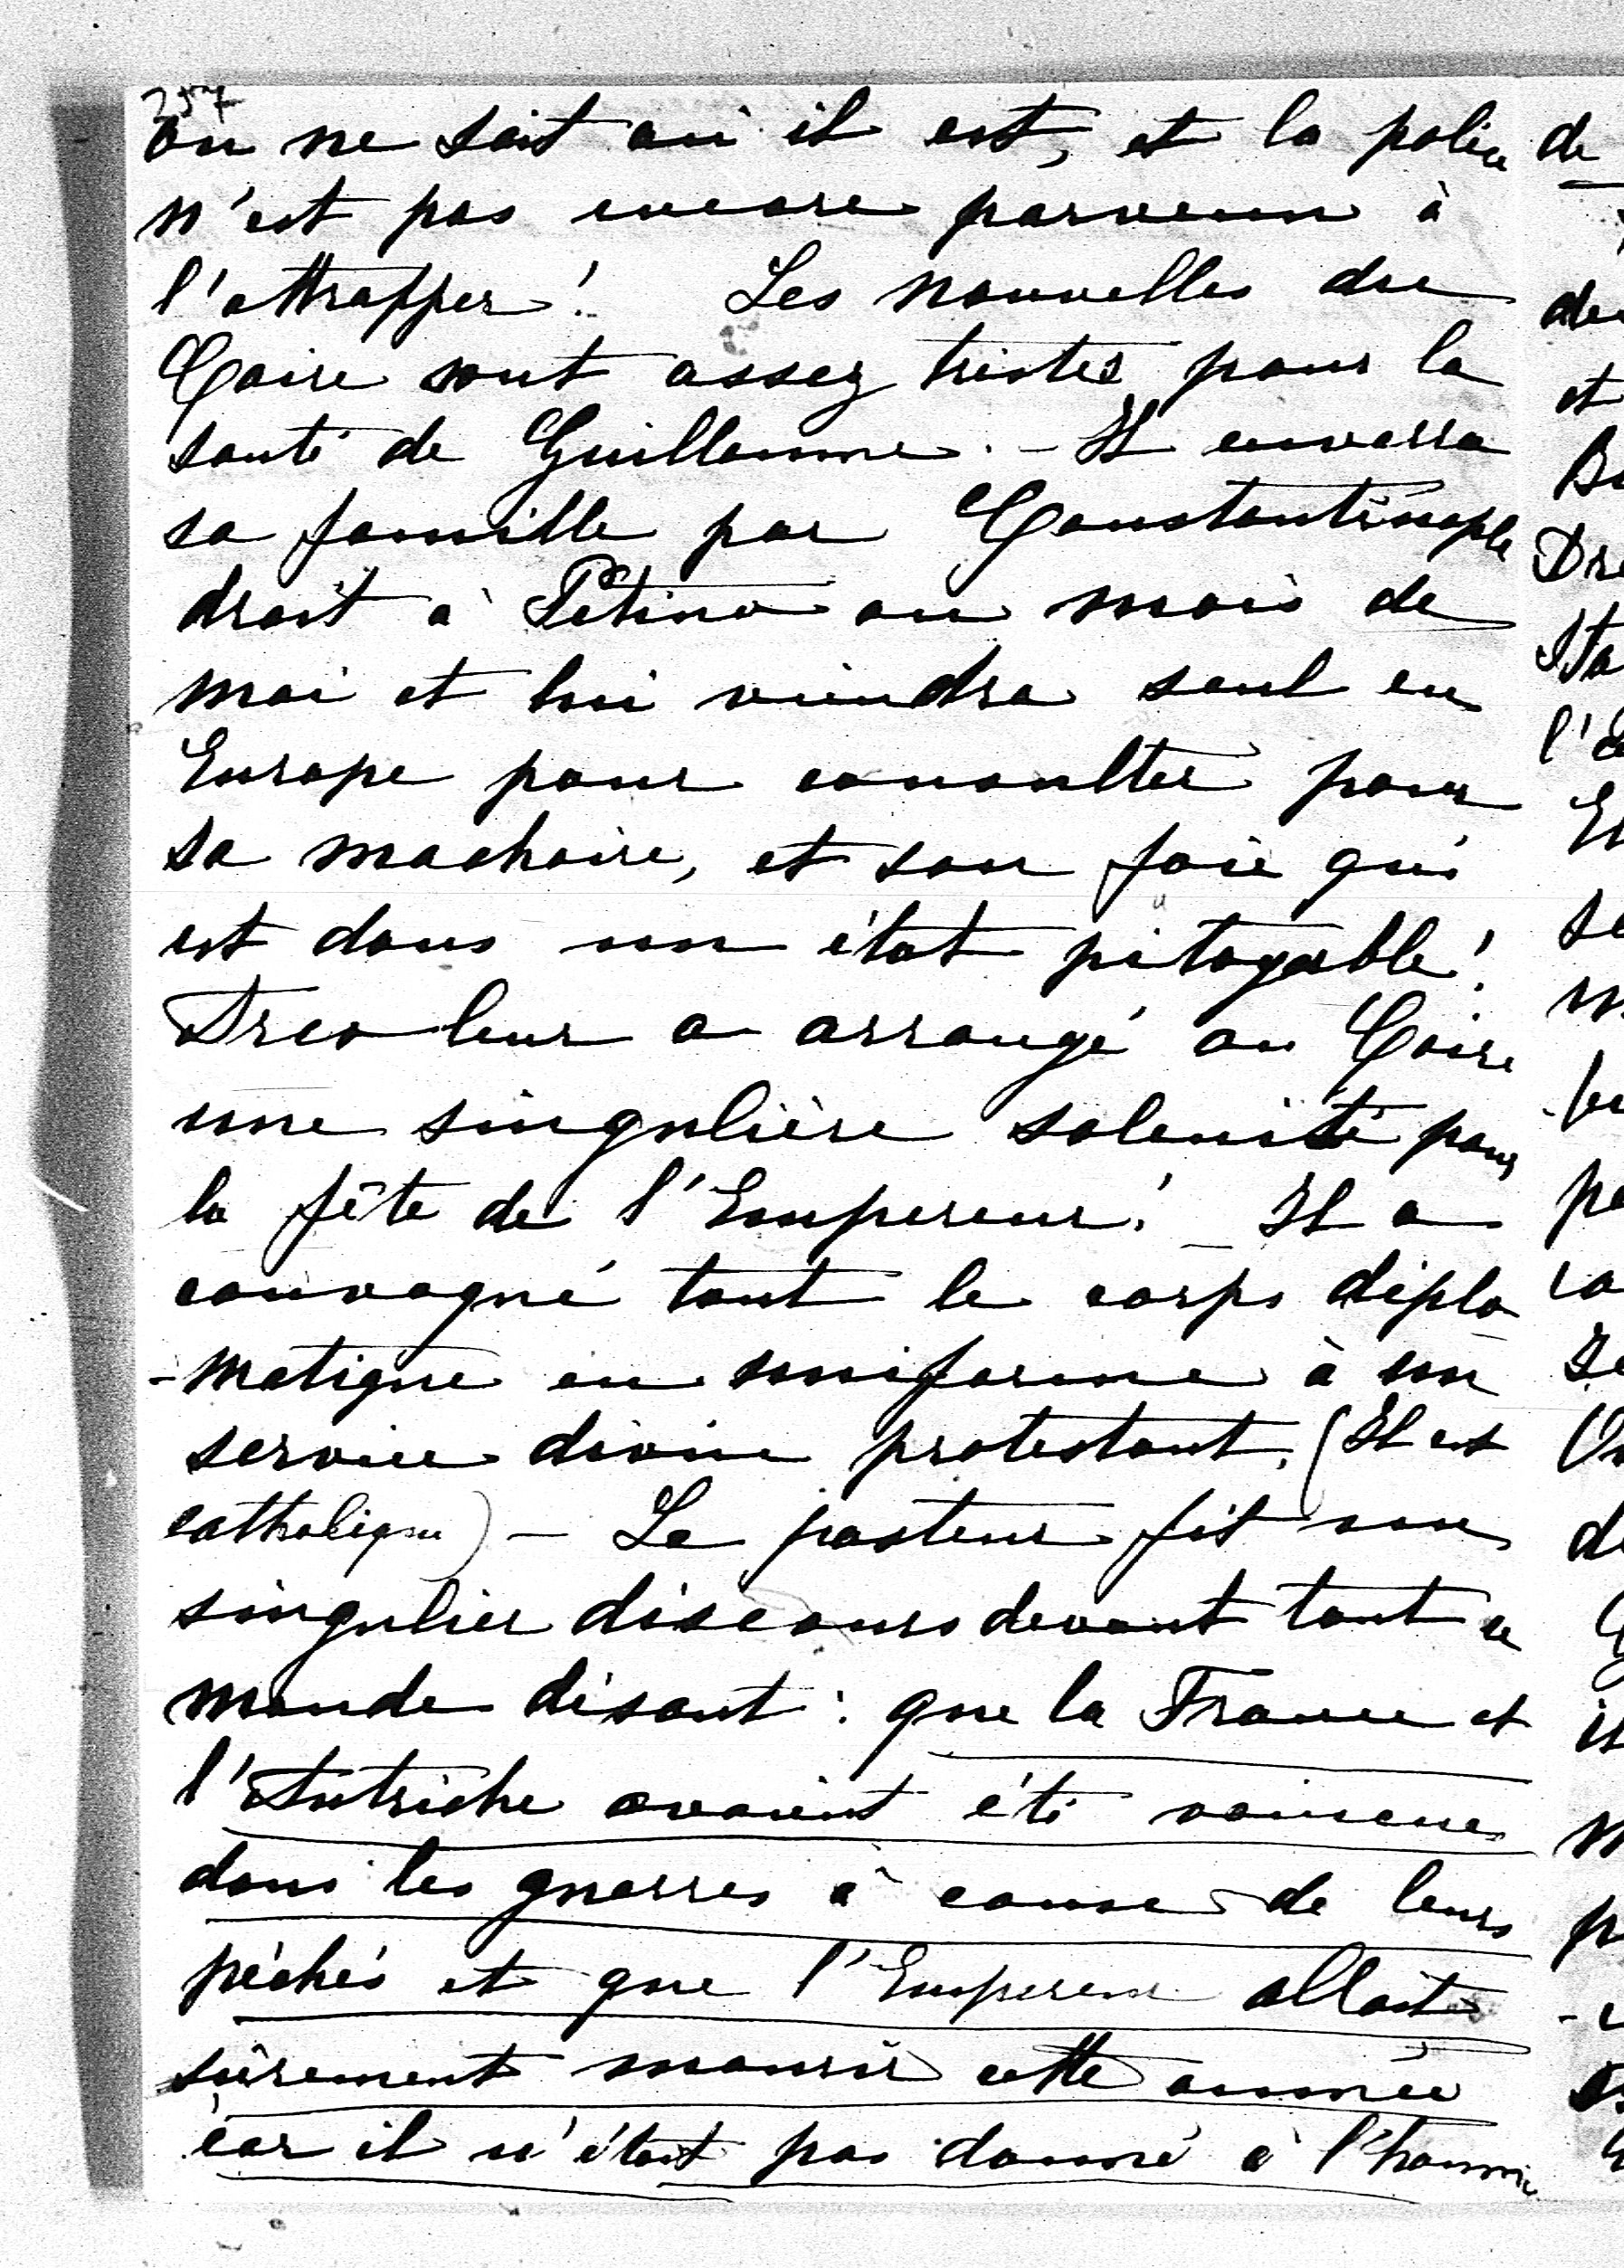 257
on ne sait où il est, et la police
n'est pas encore parvenu à
l'attrapper! Les nouvelles du
Caire sont assez tristes pour la
santé de Guillaume. - Il enverra
sa famille par Constantinople
droit à Petino au mois de
mai et lui viendra seul en
Europe pour consulter pour
sa machoire, et son foie qui
est dans un état pitoyable!
leur a arrangé au Caire
une singulière solenité pour
la fête de l'Empereur! _ Il a
convoqué tout le corps diplo
-matique en uniforme à son
service divin protestant, (Il est
catholique) - Le pasteur fit un
singulier discours devant tout ce
monde disant : que la France et
l'Autriche avaient été vaincue
dans les guerres à cause de leurs
péchés et que l'Empereur allait
sûrement mourir cette année
car il n'était pas donné à l'homme
de
et